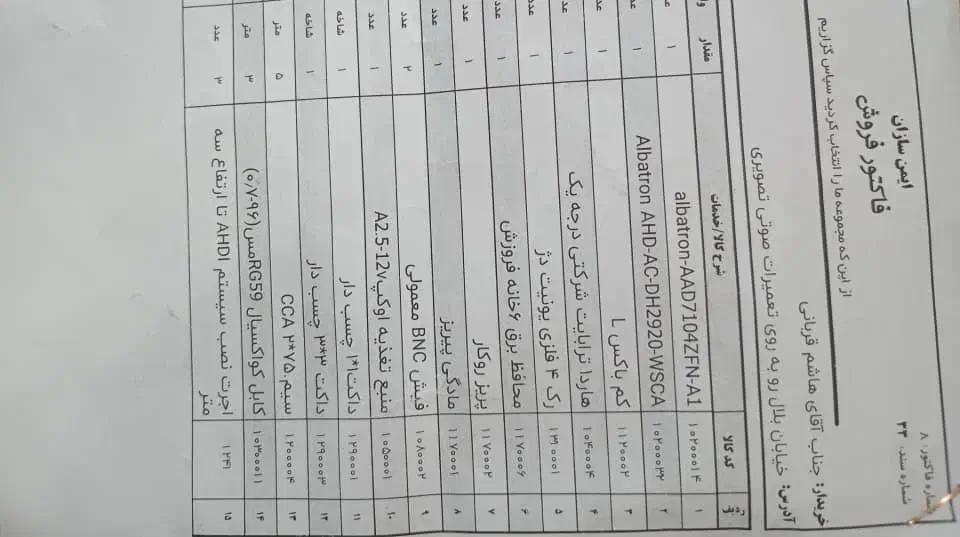 ایمن سازان
فاکتور فروش
از این که مجموعه ما را انتخاب کردید سپاس گزاریم
شماره فاکتور: ۸
شماره سند: ۳۳
خریدار: جناب آقای هاشم قربانی
آدرس: خیابان بلال رو به روی تعمیرات صوتی تصویری
ردیف کد کالا شرح کالا/خدمات مقدار
۱ ۱۰۲۰۰۰۱۴ albatron-AAD7104ZFN-A1 ۱
۲ ۱۰۲۰۰۰۳۲ Albatron AHD-AC-DH2920-WSCA ۱ عدد
۳ ۱۱۲۰۰۰۲ کم باکس L ۱ عدد
۴ ۱۰۴۰۰۰۴ هاردا ترابایت شرکتی درجه یک ۱ عدد
۵ ۱۳۱۰۰۰۱ رک ۴ فلزی یونیت دژ ۱ عدد
۶ ۱۱۷۰۰۰۶ محافظ برق ۶خانه فروزش ۱ عدد
۷ ۱۱۷۰۰۰۲ پریز روکار ۱ عدد
۸ ۱۱۷۰۰۰۱ مادگی پیریز ۱ عدد
۹ ۱۰۸۰۰۰۲ فیش BNC معمولی ۲ عدد
۱۰ ۱۰۵۰۰۰۱ منبع تغذیه اوکپ A2.5-12v ۱ عدد
۱۱ ۱۲۹۰۰۰۱ داکت۱*۱ چسب دار ۱ شاخه
۱۲ ۱۲۹۰۰۰۳ داکت ۳*۳ چسب دار ۱ شاخه
۱۳ ۱۲۰۰۰۰۴ سیم CCA ۲*۷۵. ۵ متر
۱۴ ۱۰۳۰۰۰۱۱ کابل کواکسیال RG59مس(۹۶-۰٫۷) ۳ متر
۱۵ ۱۲۴۱ اجرت نصب سیستم AHDI تا ارتفاع سه ۳ عدد
متر